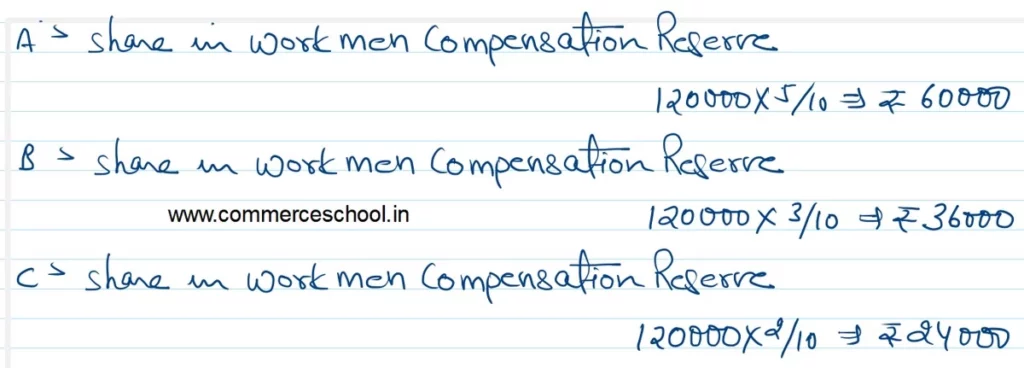 A's share in workmen Compensation Reserve
120000 X 5/10 ⇒ ₹ 60000
B's share in workmen Compensation Reserve
www.commerceschool.in
120000 X 3/10 ⇒ ₹ 36000
C's share in workmen Compensation Reserve
120000 X 2/10 ⇒ ₹ 24000